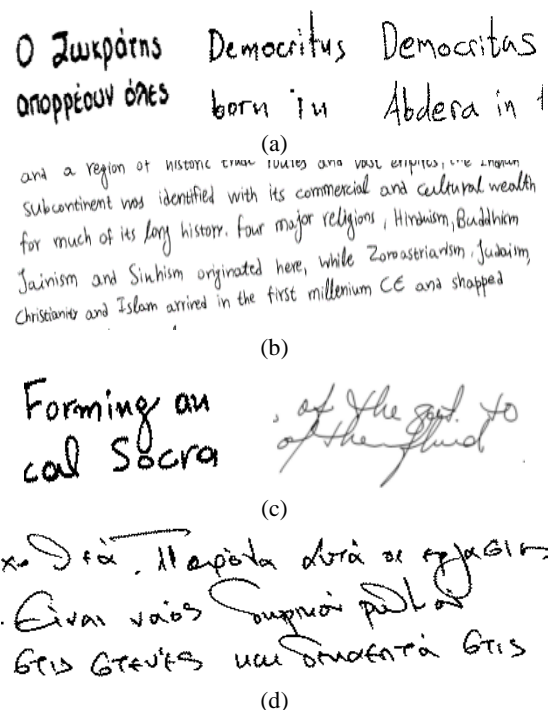 Ο Σωκράτης
απορρέουν όλες
Democritus
born in
Democritas
Abdera in t
(a)
and a region of historic trade routes and vast empires, the Indian
subcontinent was identified with its commercial and cultural wealth
for much of its long history. Four major religions, Hinduism, Buddhism
Jainism and Sikhism originated here, while Zoroastrianism, Judaism,
Christianity and Islam arrived in the first millenium CE and shapped
(b)
Forming an
cal Socra
, of the govt. to
of the fluid
(c)
αυτά σε
Είναι ναός
στις στενές και δεκαεπτά στις
(d)